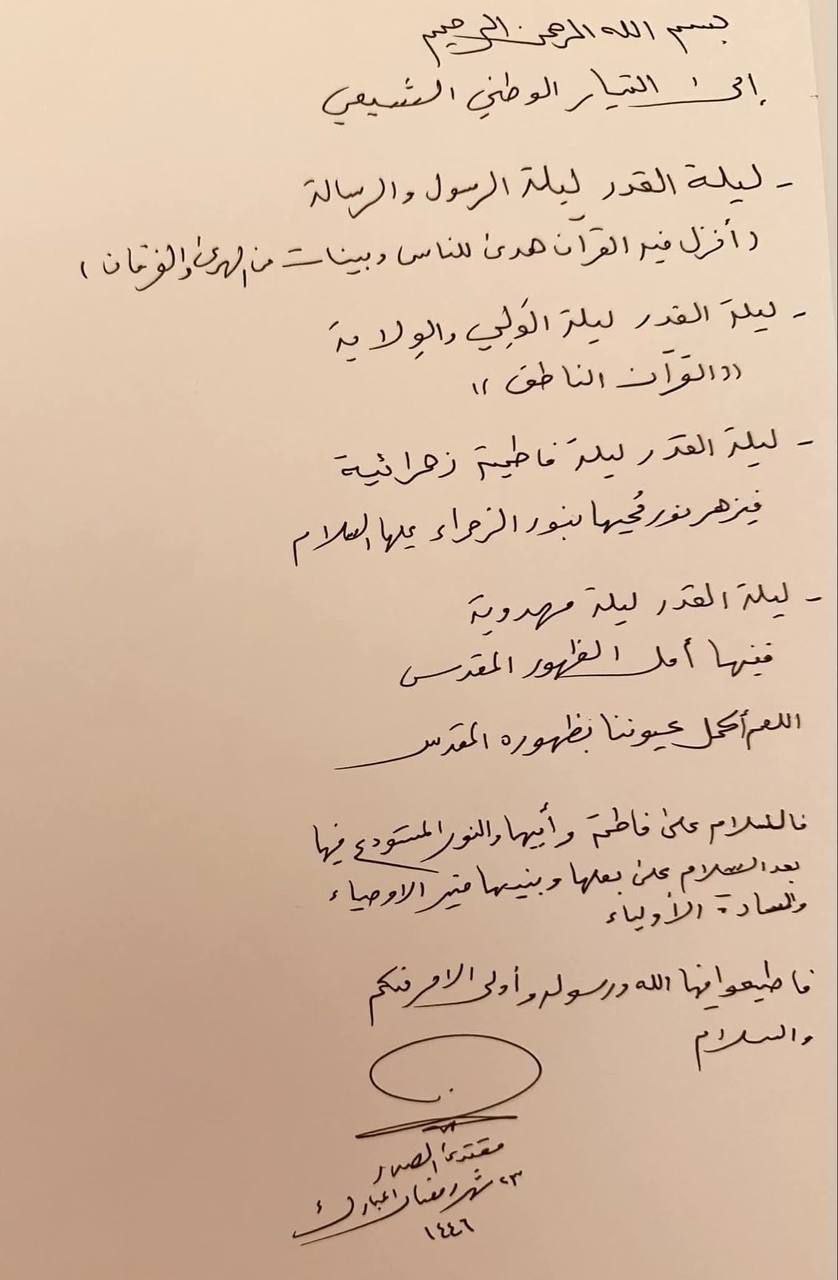 بسم الله الرحمن الرحيم
إلى التيار الوطني الشيعي
- ليلة القدر ليلة الرسول والرسالة
(أنزل فيه القرآن هدىً للناس وبينات من الهدى والفرقان)
- ليلة القدر ليلة الوَلي والوِلاية
((القرآن الناطق))
- ليلة القدر ليلة فاطمية زهرائية
فيزهر نور مُحييها بنور الزهراء عليها السلام
- ليلة القدر ليلة مهدوية
ففيها أمل الظهور المقدس
اللهم أكحل عيوننا بظهوره المقدس
فالسلام على فاطمة وأبيها والنور المستودع فيها
بعد السلام على بعلها وبنيها خير الاوصياء
والسادة الأولياء
فاطيعوا فيها الله ورسوله وأولي الامر منكم
والسلام
مقتدى الصدر
٢٣ شهر رمضان المبارك
١٤٤٦